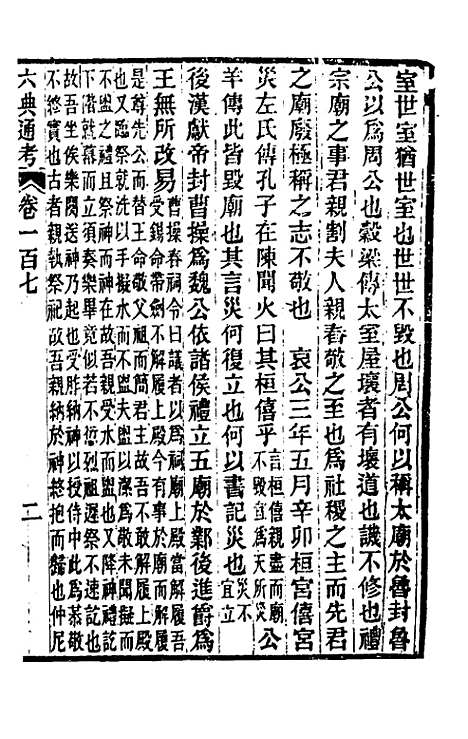 室世室猶世室也世世不毀也周公何以稱太廟於魯封魯
公以爲周公也穀梁傳太室屋壞者有壞道也譏不修也禮
宗廟之事君親割夫人親舂敬之至也爲社稷之主而先君
之廟廢極稱之志不敬也　哀公三年五月辛卯桓宮僖宮
災左氏傳孔子在陳聞火曰其桓僖乎言桓僖親盡而廟不毀宜爲天所災公
羊傳此皆毀廟也其言災何復立也何以書記災也災不宜立
後漢獻帝封曹操爲魏公依諸侯禮立五廟於鄴後進爵爲
王無所改易曹操春祠令曰議者以爲祠廟上殿當解履吾受錫命帶劍不解履上殿今有事於廟而解履
是尊先公而替王命敬父祖而簡君主故吾不敢解履上殿也又臨祭就洗以手擬水而不盥夫盥以潔爲敬未聞擬而
不盥之禮且祭神如神在故吾親受水而盥也又降神禮訖下階就幕而立須奏樂畢竟似若不愆烈祖遲祭不速訖也
故吾坐俟樂闋送神乃起也受胙納神以授侍中此爲恭敬不終實也古者親執祭祀故吾親納於神終抱而歸也仲尼
六典通考　卷一百七　二